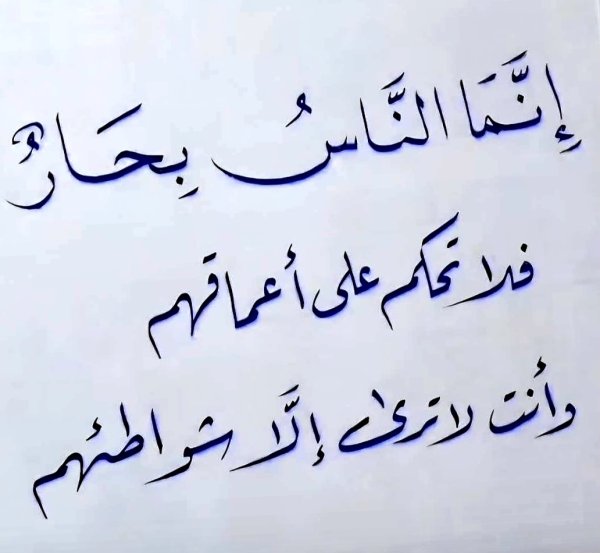 إِنَّمَا النَّاسُ بِحَارٌ
فلا تحكم على أعماقهم
وأنت لا ترى إلَّا شواطئهم